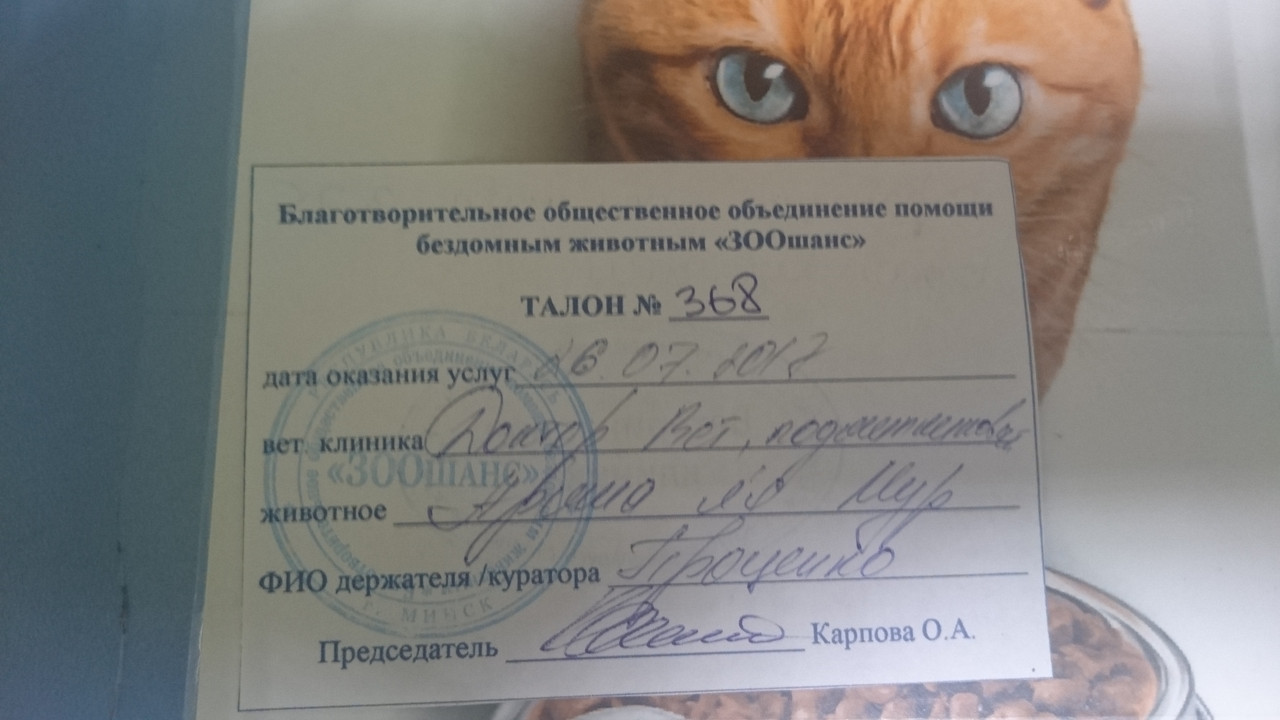 Благотворительное общественное объединение помощи
бездомным животным «ЗООшанс»
ТАЛОН № 368
дата оказания услуг 26.07.2017
вет. клиника Доктор Вет,
животное Мур
ФИО держателя /куратора Проценко
Председатель Карпова О.А.
РЕСПУБЛИКА БЕЛАРУСЬ
«ЗООшанс»
г. МИНСК